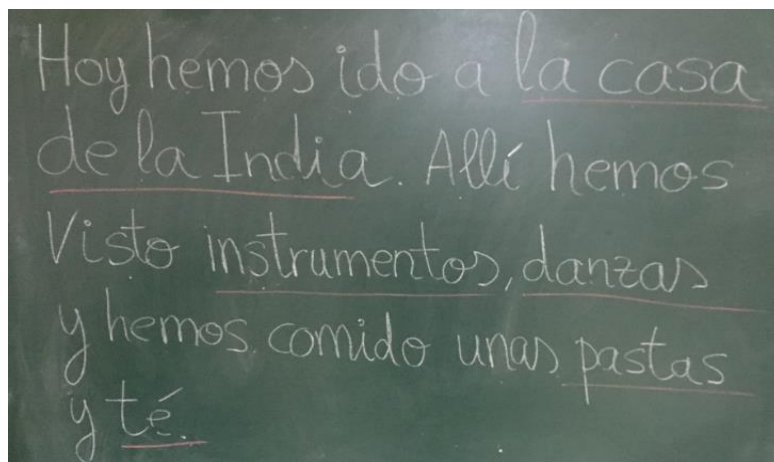 Hoy hemos ido a la casa
de la India. Allí hemos
Visto instrumentos, danzas
y hemos comido unas pastas
y té.